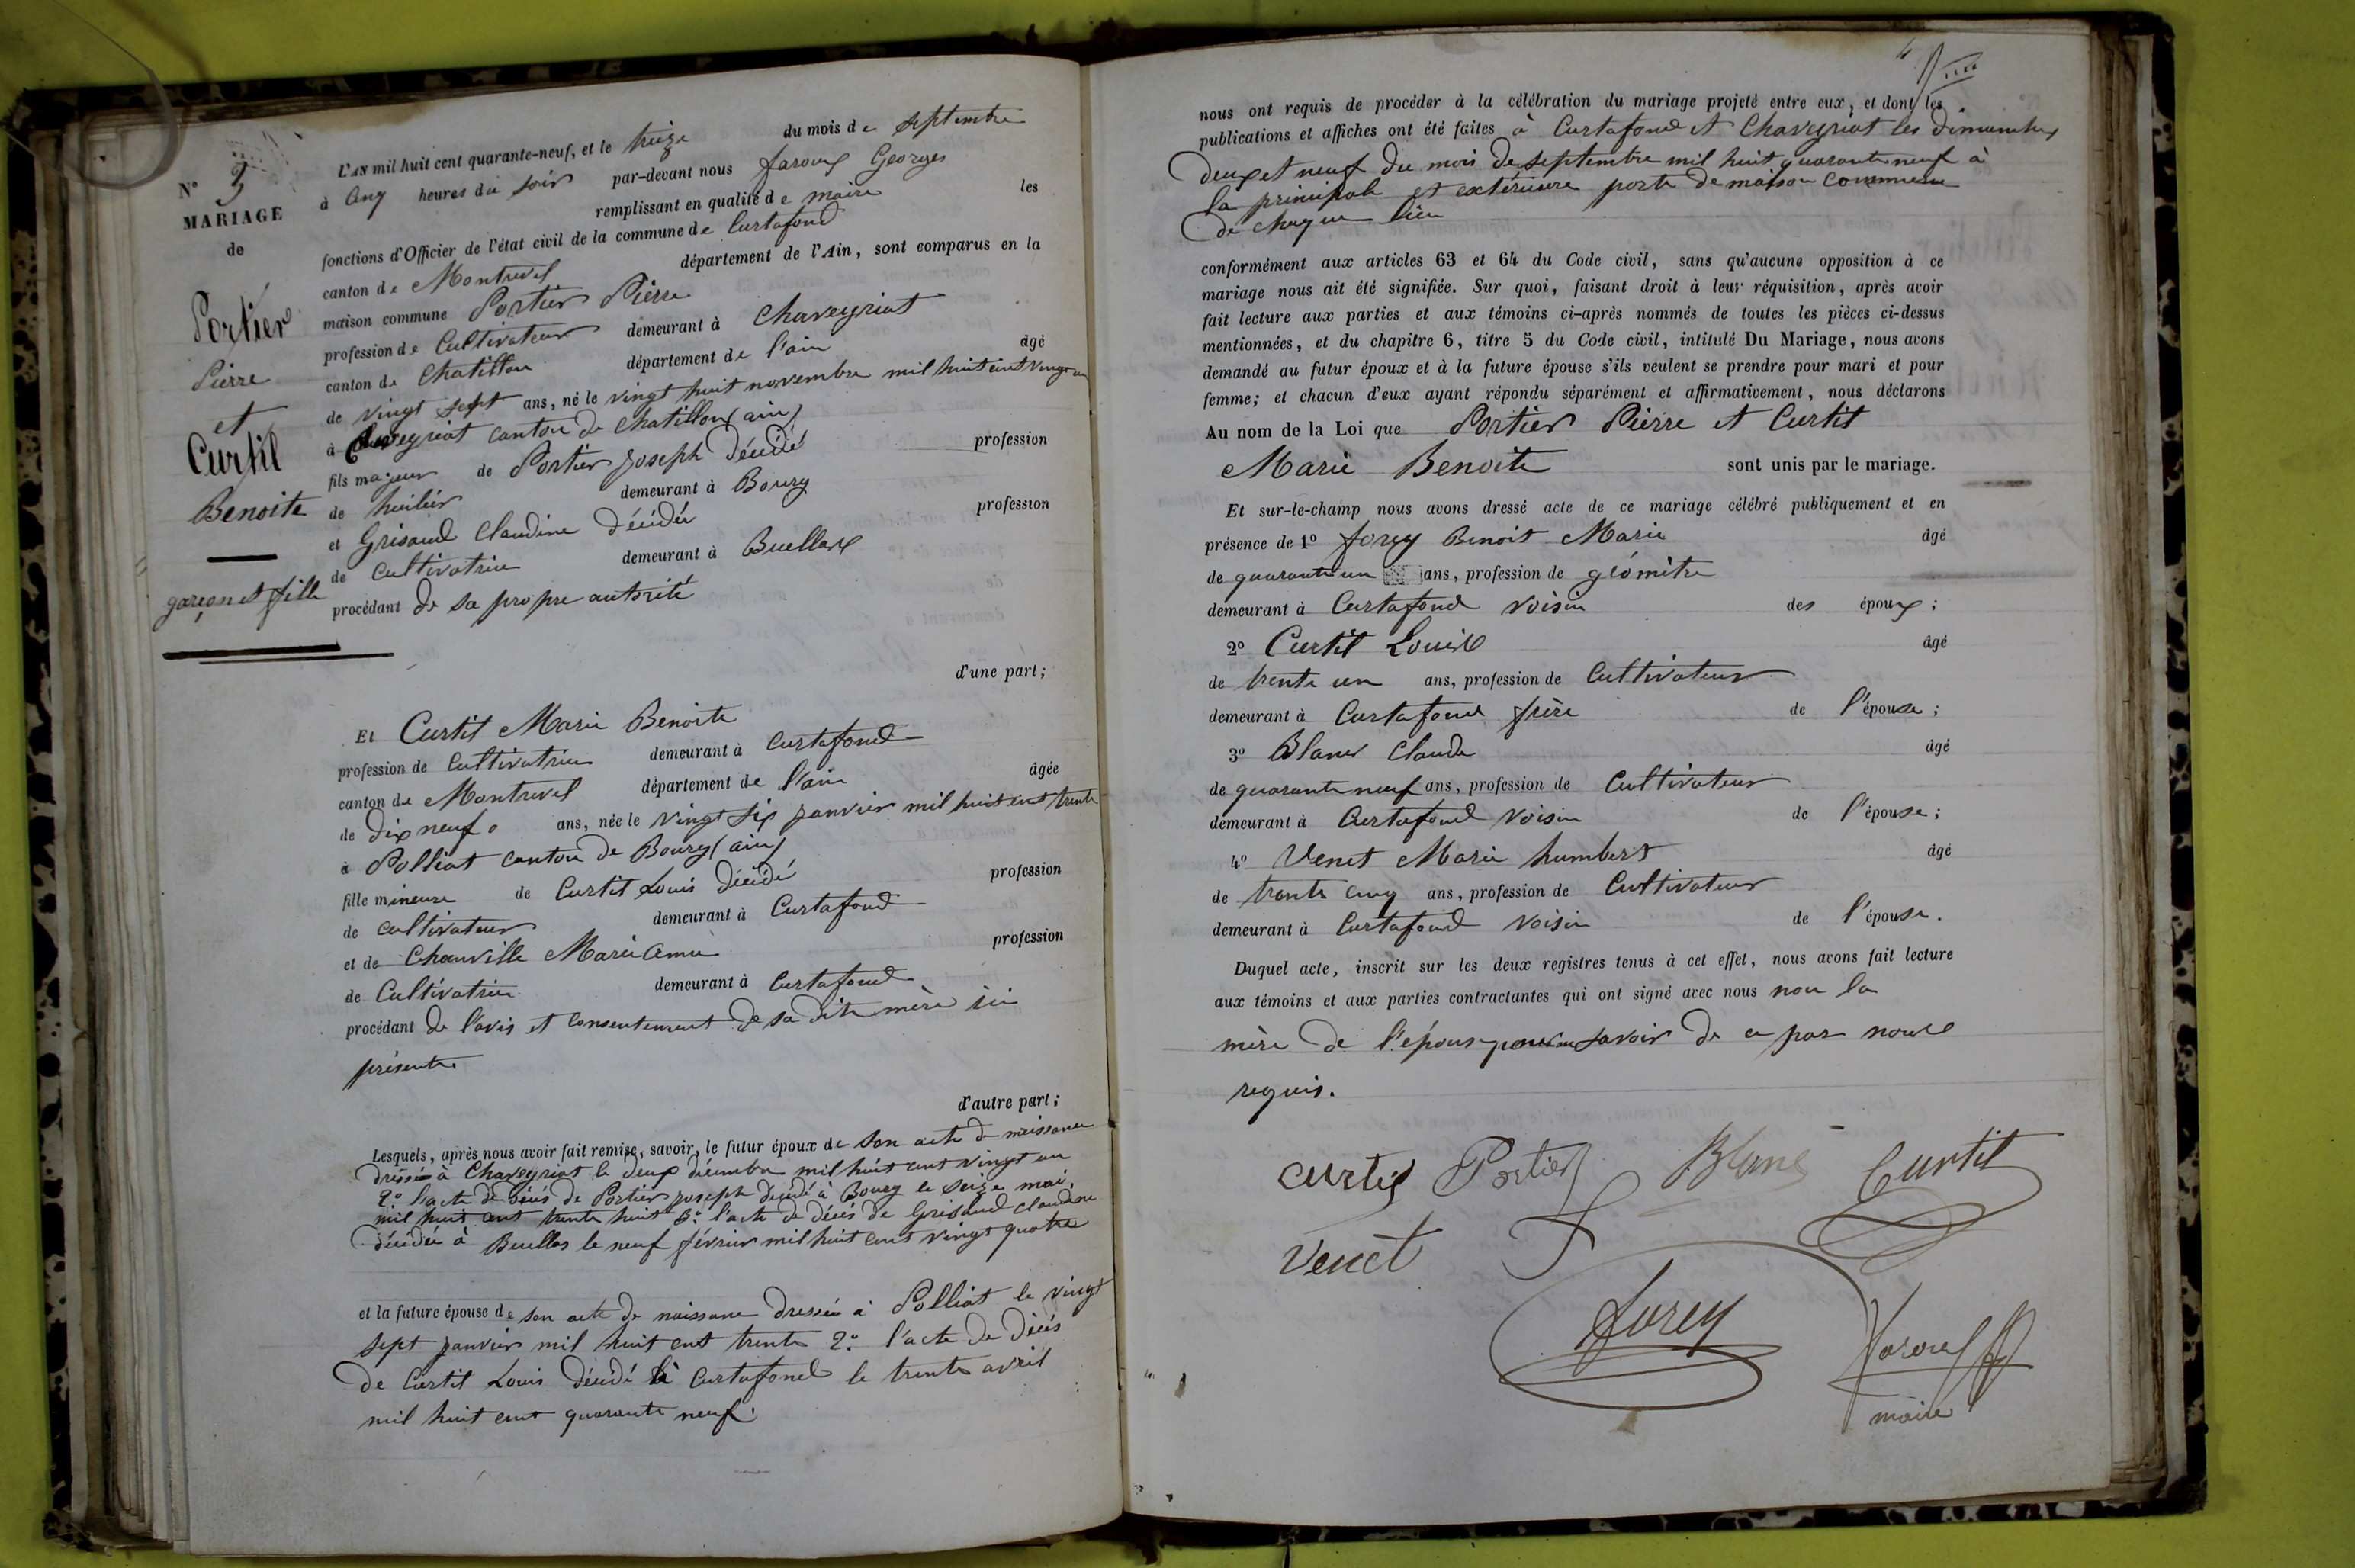 N° 3
MARIAGE
de
Portier
Pierre
et
Curtil
Benoite
garçon et fille
L'AN mil huit cent quarante-neuf, et le treize du mois de septembre
à cinq heures du soir par-devant nous Jaroux Georges
remplissant en qualité de maire les
fonctions d'Officier de l'état civil de la commune de Curtafond
canton de Montrevel département de l'Ain, sont comparus en la
maison commune Portier Pierre
profession de Cultivateur demeurant à Chaveyriat
canton de Chatillon département de l'ain âgé
de vingt sept ans, né le vingt huit novembre mil huit cent vingt un
à Chaveyriat canton de Chatillon (ain)
fils majeur de Portier Joseph décédé profession
de huilier demeurant à Bourg
et Grisaud Claudine décédée profession
de cultivatrice demeurant à Buellas
procédant de sa propre autorité
d'une part;
Et Curtil Marie Benoite
profession de Cultivatrice demeurant à Curtafond
canton de Montrevel département de l'ain âgée
de dix neuf ans, née le vingt six janvier mil huit cent trente
à Polliat canton de Bourg (ain)
fille mineure de Curtil Louis décédé profession
de cultivateur demeurant à Curtafond
et de Chanville Marie Anne profession
de Cultivatrice demeurant à Curtafond
procédant de l'avis et consentement de sa dite mère ici
présente.
d'autre part;
Lesquels, après nous avoir fait remise, savoir, le futur époux de son acte de naissance
dressée à Chaveyriat le deux décembre mil huit cent vingt un
2° l'acte de décès de Portier Joseph décédé à Bourg le seize mai
mil huit cent trente huit 3° l'acte de décès de Grisaud Claudine
décédée à Buellas le neuf février mil huit cent vingt quatre
et la future épouse de son acte de naissance dressée à Polliat le vingt
sept janvier mil huit cent trente 2° l'acte de décès
de Curtil Louis décédé à Curtafond le trente avril
mil huit cent quarante neuf.
nous ont requis de procéder à la célébration du mariage projeté entre eux, et dont les
publications et affiches ont été faites à Curtafond et Chaveyriat les dimanches
deux et neuf du mois de septembre mil huit quarante neuf à
la principale et extérieure porte de maison commune
de chaque lieu
conformément aux articles 63 et 64 du Code civil, sans qu'aucune opposition à ce
mariage nous ait été signifiée. Sur quoi, faisant droit à leur réquisition, après avoir
fait lecture aux parties et aux témoins ci-après nommés de toutes les pièces ci-dessus
mentionnées, et du chapitre 6, titre 5 du Code civil, intitulé Du Mariage, nous avons
demandé au futur époux et à la future épouse s'ils veulent se prendre pour mari et pour
femme; et chacun d'eux ayant répondu séparément et affirmativement, nous déclarons
Au nom de la Loi que Portier Pierre et Curtil
Marie Benoite sont unis par le mariage.
Et sur-le-champ nous avons dressé acte de ce mariage célébré publiquement et en
présence de 1° Forey Benoit Marie âgé
de quarante un ans, profession de géomètre
demeurant à Curtafond voisin des époux;
2° Curtil Louis âgé
de trente un ans, profession de Cultivateur
demeurant à Curtafond frère de l'épouse;
3° Blanc Claude âgé
de quarante neuf ans, profession de Cultivateur
demeurant à Curtafond voisin de l'épouse;
4° Venet Marie humbert âgé
de trente cinq ans, profession de Cultivateur
demeurant à Curtafond voisin de l'épouse.
Duquel acte, inscrit sur les deux registres tenus à cet effet, nous avons fait lecture
aux témoins et aux parties contractantes qui ont signé avec nous non la
mère de l'épouse savoir de ce par nous
requis.
Curtil Portier Blanc Curtil
Venet
Forey Jaroux
maire